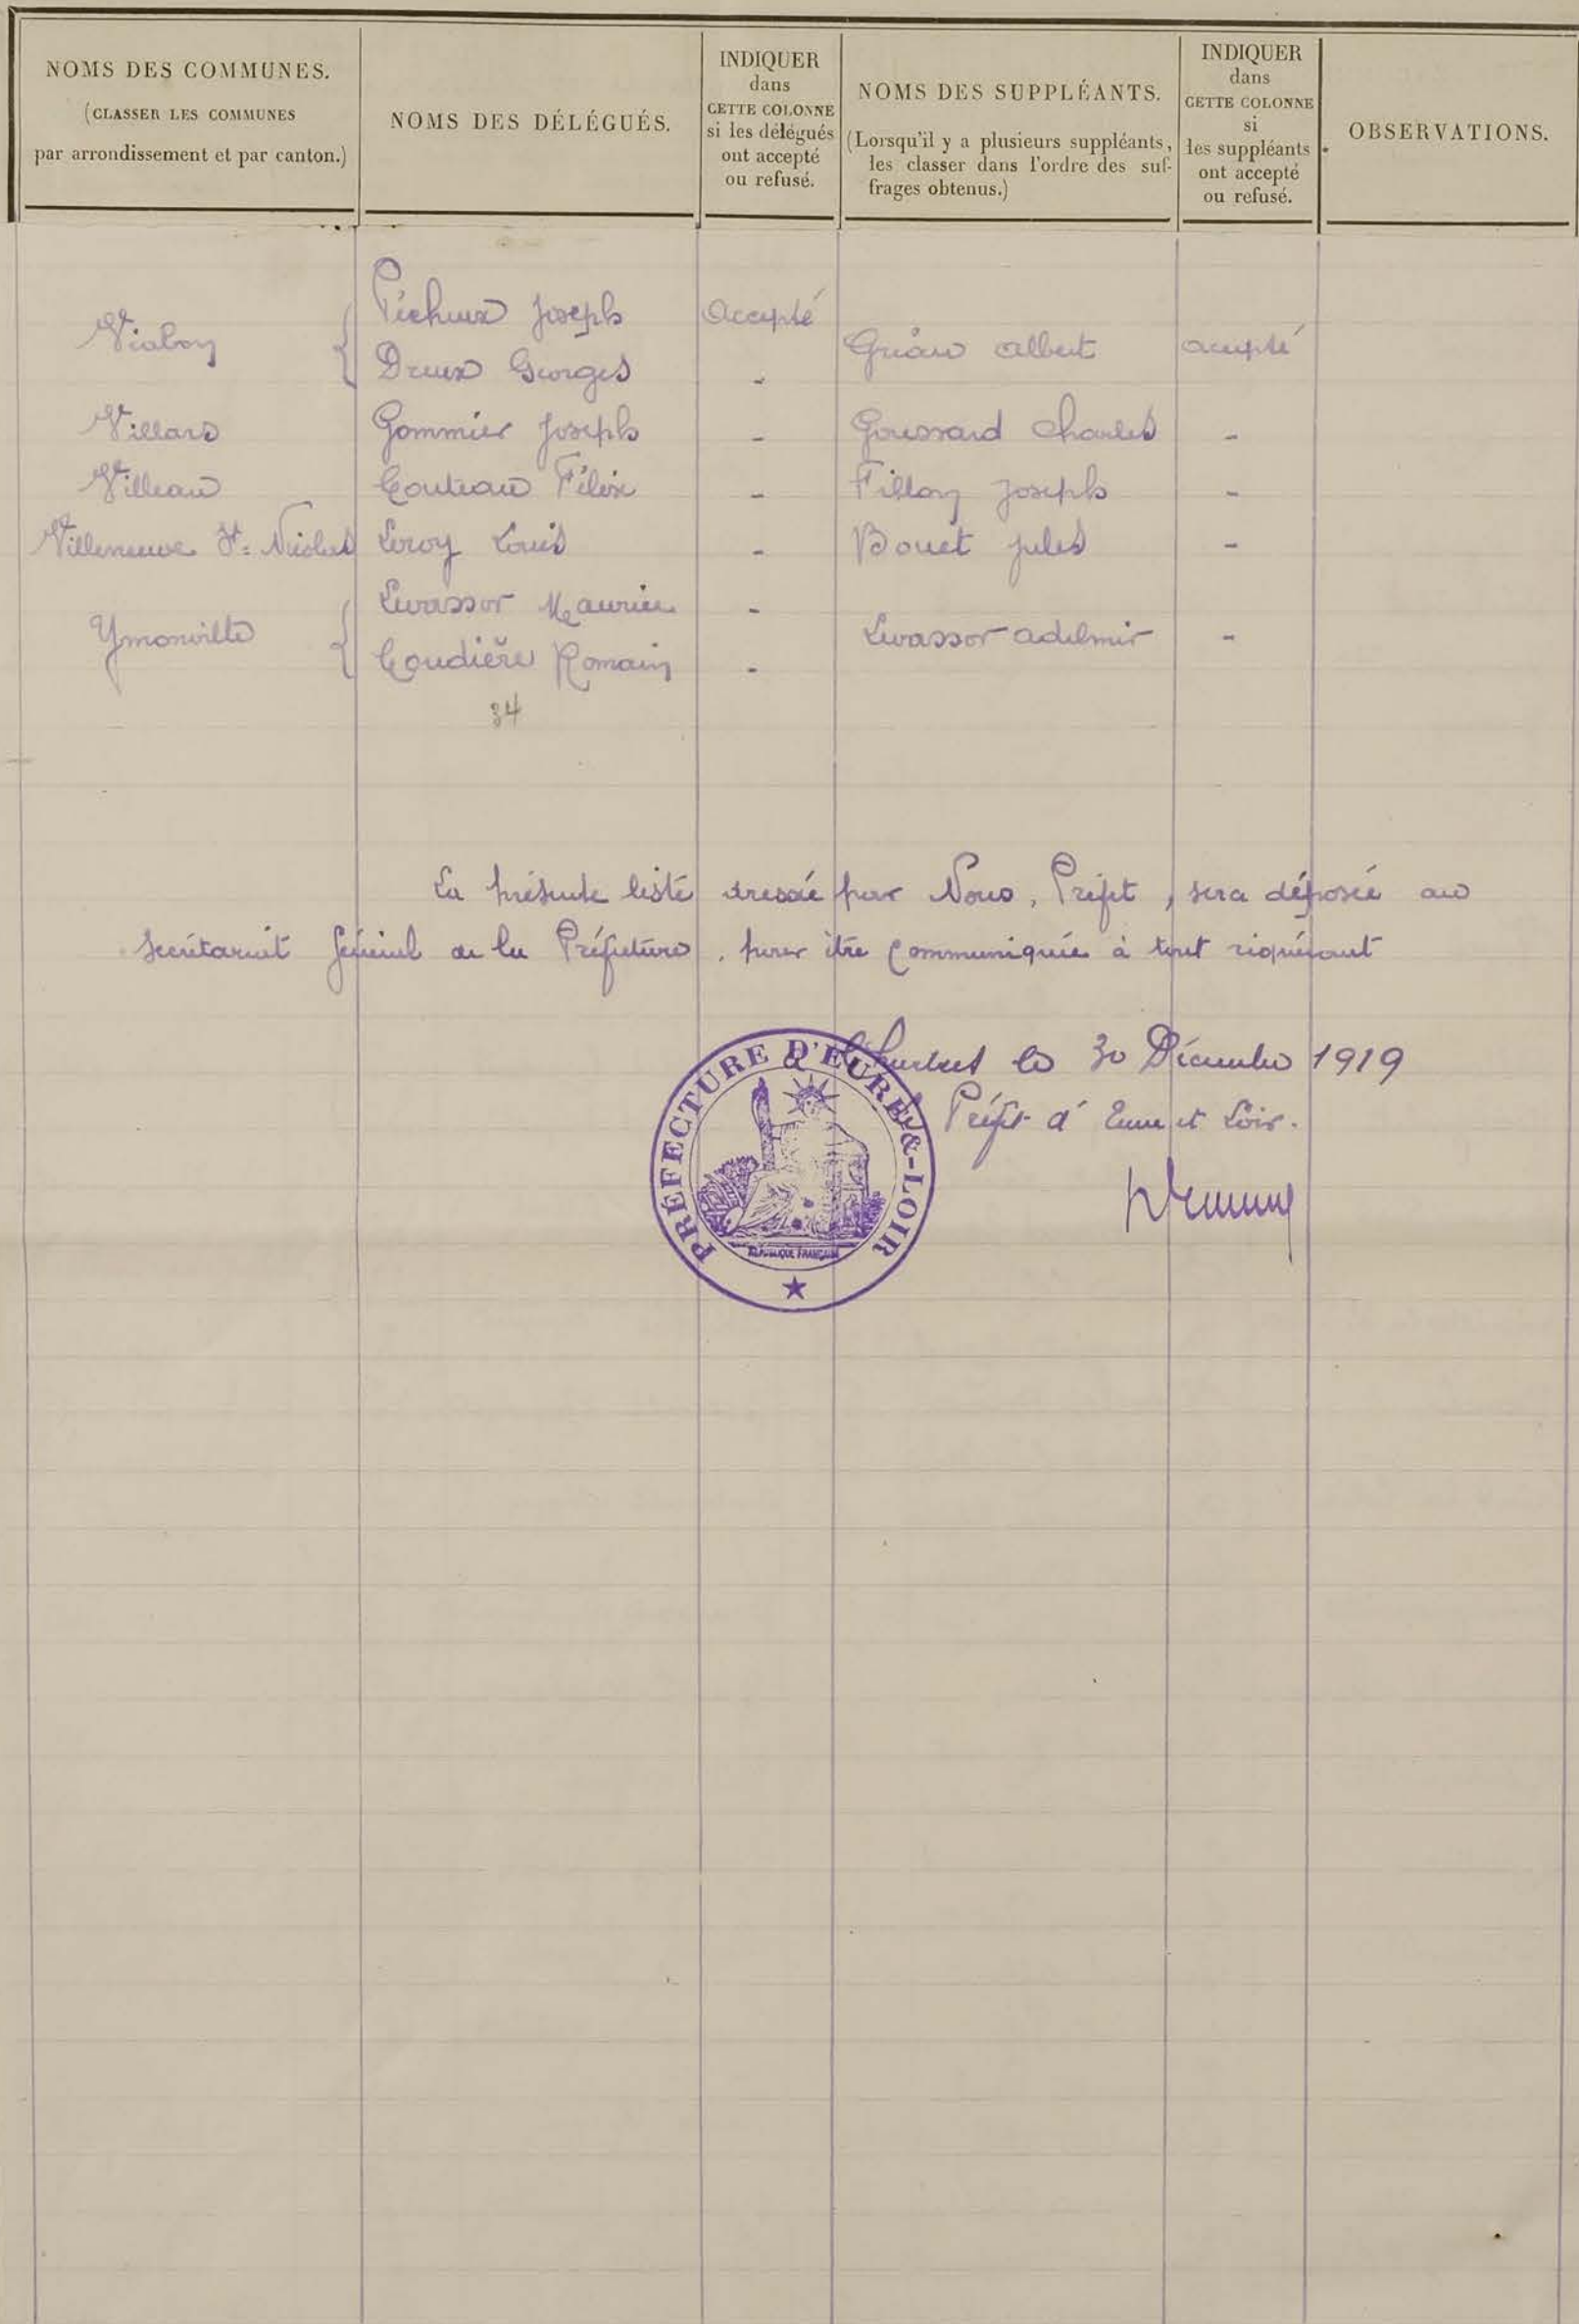 NOMS DES COMMUNES.
(CLASSER LES COMMUNES
par arrondissement et par canton.)
NOMS DES DÉLÉGUÉS.
INDIQUER
dans
CETTE COLONNE
si les délégués
ont accepté
ou refusé.
NOMS DES SUPPLÉANTS.
(Lorsqu'il y a plusieurs suppléants,
les classer dans l'ordre des suf-
frages obtenus.)
INDIQUER
dans
CETTE COLONNE
si
les suppléants
ont accepté
ou refusé.
OBSERVATIONS.
Viabon { Joseph Accepté
Dreux Georges - Albert accepté
Villars Gommier Joseph - Goussard Charles -
Villeau Couteau Félix - Fillon Joseph -
Villeneuve St= Nicolas Leroy Louis - Bouet Jules -
Ymonville { Levassor Maurice - Levassor Adelmir -
Coudière Romain -
34
La présente liste dressée par Nous, Préfet, sera déposée au
Secrétariat Général de la Préfecture, pour être communiquée à tout requérant
Chartres le 30 Décembre 1919
Préfet d'Eure et Loir.
PRÉFECTURE D'EURE-&-LOIR
RÉPUBLIQUE FRANÇAISE